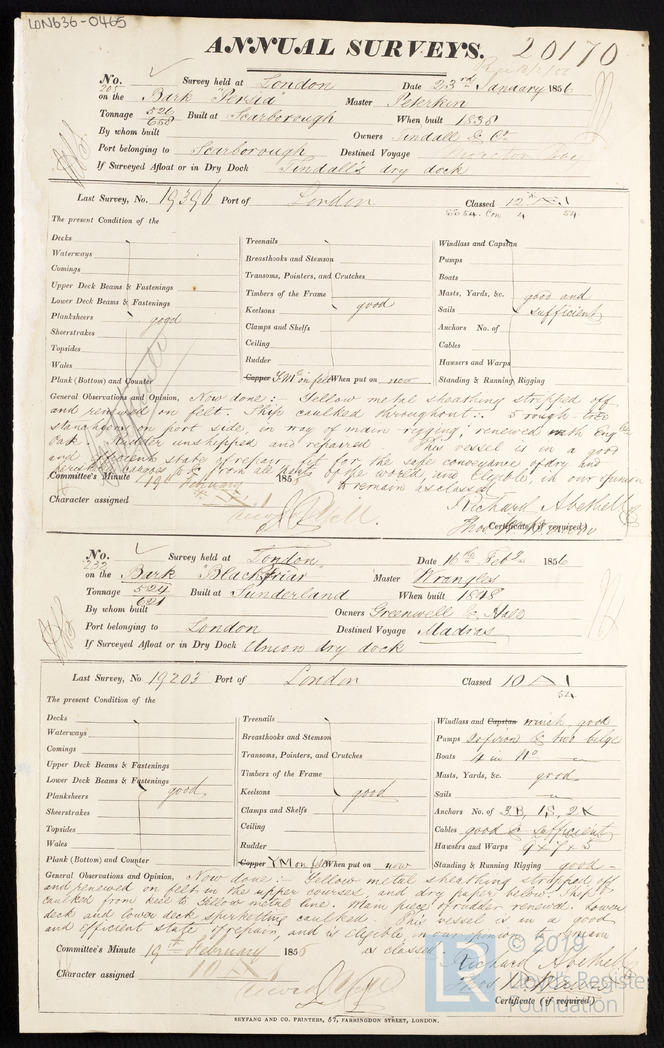 LON636-0465
ANNUAL SURVEYS. 20170
No. 205 Survey held at London Date 23rd January 1856
on the Bark "Persia" Master Peterkin
Tonnage 526 Built at Scarborough When built 1838
By whom built Owners Tindall & Co
Port belonging to Scarborough Destined Voyage
If Surveyed Afloat or in Dry Dock Tindall's dry dock
Last Survey, No. 19396 Port of London Classed
The present Condition of the
Decks
Waterways
Comings
Upper Deck Beams & Fastenings
Lower Deck Beams & Fastenings
Planksheers good
Sheerstrakes
Topsides
Wales
Plank (Bottom) and Counter
Treenails
Breasthooks and Stemson
Transoms, Pointers, and Crutches
Timbers of the Frame
Keelsons good
Clamps and Shelfs
Ceiling
Rudder
Copper Y.M. on felt When put on new
Windlass and Capstan
Pumps
Boats
Masts, Yards, &c. good and
Sails sufficient
Anchors No. of
Cables
Hawsers and Warps
Standing & Running Rigging
General Observations and Opinion, Now done:- Yellow metal sheathing stripped off
and renewed on felt. Ship caulked throughout. 5 rough tree
stanchions on port side, in way of main rigging, renewed with Eng
Oak. Rudder unshipped and repaired. This vessel is in a good
and efficient state of repair, fit for the safe conveyance of dry and
perishable cargoes to & from all parts of the world, and eligible, in our opinion
to remain as classed
Committee's Minute 19th February 1856
Character assigned
Richard Abethell
Certificate (if required)
No. 232 Survey held at London Date 16th Feb 1856
on the Bark "Blackfriar" Master Wrangles
Tonnage 524 621 Built at Sunderland When built 1848
By whom built Owners Greenwell &
Port belonging to London Destined Voyage Madras
If Surveyed Afloat or in Dry Dock Union dry dock
Last Survey, No 19203 Port of London Classed 10 A1
54
The present Condition of the
Decks
Waterways
Comings
Upper Deck Beams & Fastenings
Lower Deck Beams & Fastenings
Planksheers good
Sheerstrakes
Topsides
Wales
Plank (Bottom) and Counter
Treenails
Breasthooks and Stemson
Transoms, Pointers, and Crutches
Timbers of the Frame
Keelsons good
Clamps and Shelfs
Ceiling
Rudder
Copper YM on felt When put on new
Windlass and Capstan winch good
Pumps 2 of iron & two bilge
Boats 4 in No
Masts, Yards, &c. good
Sails
Anchors No. of 3B, 1S, 2K
Cables good & sufficient
Hawsers and Warps 9 x 7 x 5
Standing & Running Rigging good
General Observations and Opinion, Now done:- Yellow metal sheathing stripped off
and renewed on felt in the upper courses, and dry paper below. Ship
caulked from keel to Yellow metal line. Main piece of rudder renewed, lower
deck and lower deck spirketting caulked. This vessel is in a good
and efficient state of repair, and is eligible in our opinion to remain
as classed
Committee's Minute 19th February 1856
Character assigned 10 A1
Richard Abethell
Certificate (if required)
© 2019
Lloyd's Register
Foundation
SEYFANG AND CO. PRINTERS, 57, FARRINGDON STREET, LONDON.